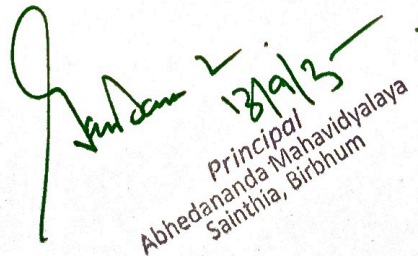 13/9/25
Principal
Abhedananda Mahavidyalaya
Sainthia, Birbhum